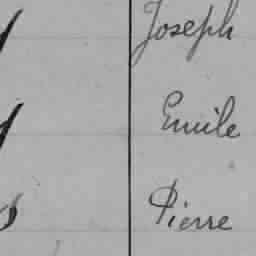 Joseph
Emile
Pierre